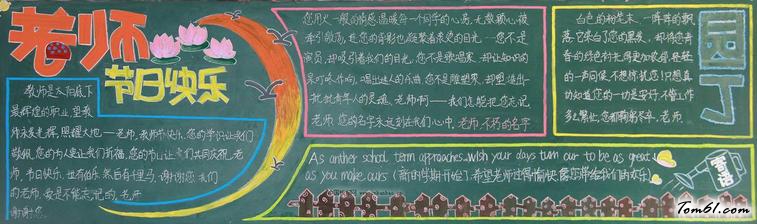 老师
节日快乐
教师是太阳底下
最辉煌的职业,望教
师永发光辉,照耀大地——老师,教师节快乐,您的学识让我们
敬佩,您的为人更让我们折服,您的节日让我们共同庆祝,老
师,节日快乐,也有俗,来自各种里。谢谢您,我们
的老师,您是不能忘记的,老师
谢谢您
您用火一般的情感温暖每一个同学的心房,无数颗心被
牵引激荡,连您的背影也凝聚着滚烫的目光……您不是
演员,却吸引着我们的目光,您不是歌唱家,却让知识的
泉水叮咚作响,唱出迷人的乐曲,您不是雕塑家,却塑造出一
批批青年人的灵魂。老师啊——我们怎能把您忘记
老师,您的名字永远刻在我们心中。老师,不朽的名字
白色的粉笔末,一阵阵的飘
落,它染白了您的黑发,却将您青
春的绿色衬托得更加浓郁,轻轻
的一声问候,不想惊扰您!只想真
切知道您的一切是安好,不管工作
多么繁忙,您都辛劳。老师
园丁
As another school term approaches.wish your days turn our to be as great
as you make ours (新的学期开始了,希望老师过得愉快,像您带给我们的欢乐)
英语
Tom61.com